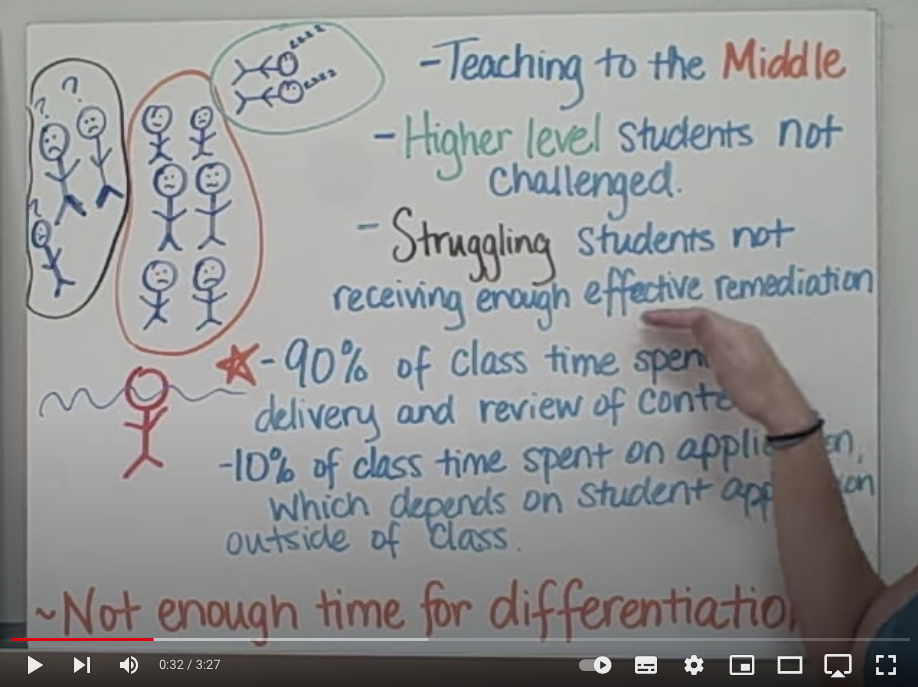 zzzz
zzzz
? ?
?
-Teaching to the Middle
-Higher level students not
challenged.
-Struggling students not
receiving enough effective remediation
-90% of class time
delivery and review of
-10% of class time spent on
which depends on student
outside of class.
~Not enough time for
0:32 / 3:27